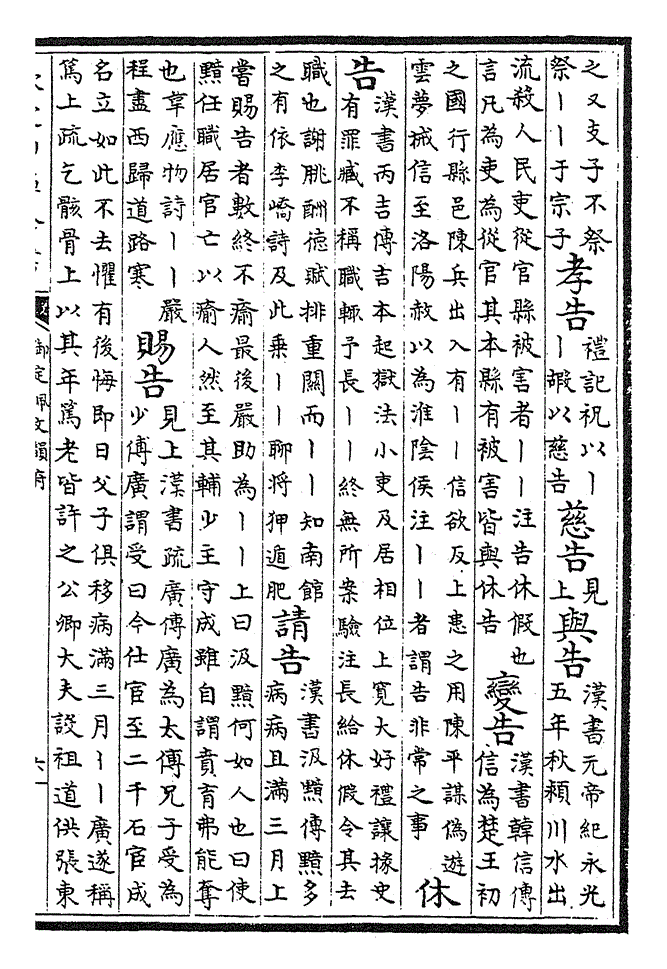 之又支子不祭
祭丨丨于宗子
孝告
禮記祝以丨
丨嘏以慈告
慈告
見
上
與告
漢書元帝紀永光
五年秋潁川水出
流殺人民吏從官縣被害者丨丨注告休假也
言凡為吏為從官其本縣有被害皆與休告
變告
漢書韓信傳
信為楚王初
之國行縣邑陳兵出入有丨丨信欲反上患之用陳平謀偽遊
雲夢械信至洛陽赦以為淮陰侯注丨丨者謂告非常之事
休
告
漢書丙吉傳吉本起獄法小吏及居相位上寛大好禮讓掾史
有罪臧不稱職輒予長丨丨終無所案驗注長給休假令其去
職也謝朓酬徳賦排重關而丨丨知南館
之有依李嶠詩及此乗丨丨聊將狎遁肥
請告
漢書汲黯傳黯多
病病且滿三月上
嘗賜告者數終不瘉最後嚴助為丨丨上曰汲黯何如人也曰使
黯任職居官亡以瘉人然至其輔少主守成雖自謂賁育弗能奪
也韋應物詩丨丨嚴
程盡西歸道路寒
賜告
見上漢書疏廣傳廣為太傅兄子受為
少傅廣謂受曰今仕宦至二千石宦成
名立如此不去懼有後悔即日父子俱移病滿三月丨丨廣遂稱
篤上疏乞骸骨上以其年篤老皆許之公卿大夫設祖道供張東
御定佩文韻府